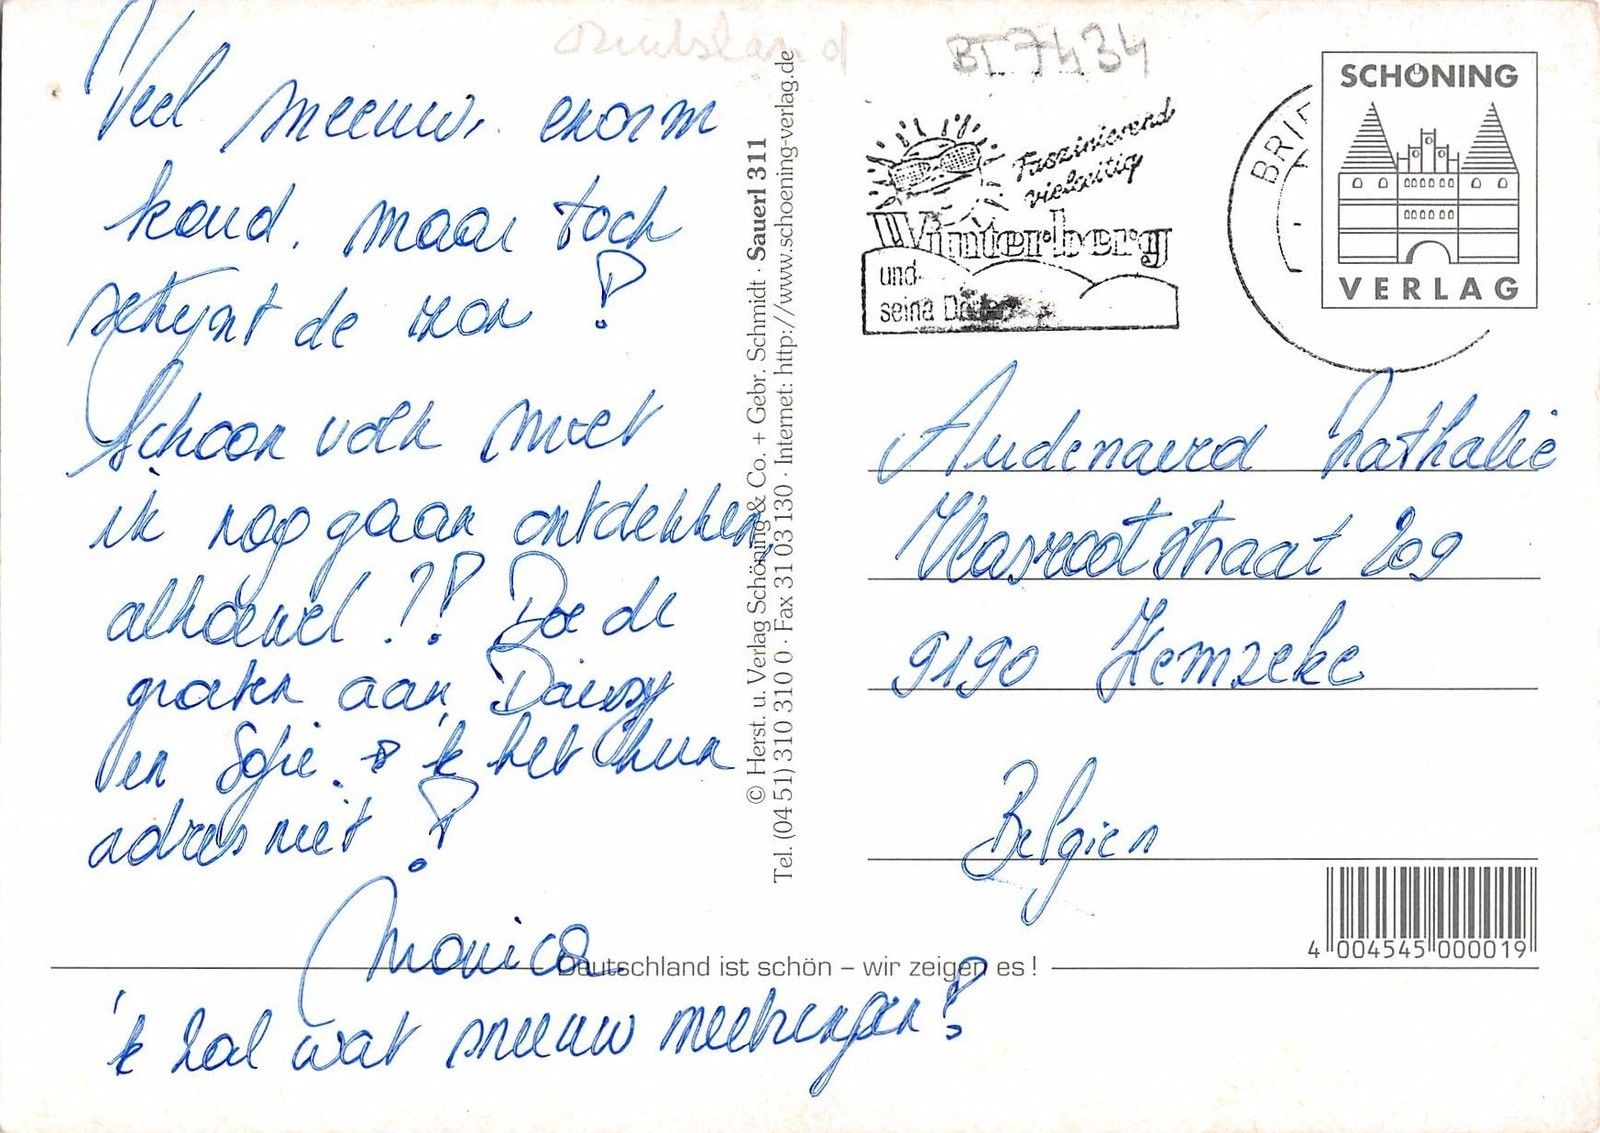 Duitsland
BT 7434
Veel sneeuw, enorm
koud, maar toch
schijnt de zon !
Schoon volk moet
ik nog gaan ontdekken,
alhoewel ?! Doe de
groeten aan Daisy
en Sofie. 'k heb hun
adres niet !
Monica
'k zal wat sneeuw meebrengen !
© Herst. u. Verlag Schöning & Co. + Gebr. Schmidt · Sauerl 311
Tel. (04 51) 310 310 0 · Fax 31 03 130 · Internet: http://www.schoening-verlag.de
Faszinierend
vielseitig
Winterberg
und
seina
BRIEF
SCHÖNING
VERLAG
Audenaerd Nathalie
Vlasrootstraat 209
9190 Kemzeke
Belgien
4 004545 000019
Deutschland ist schön – wir zeigen es !